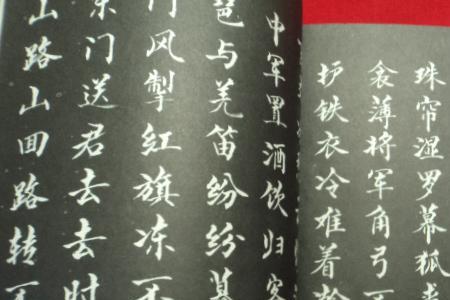 珠帘湿罗幕狐
衾薄将军角弓
护铁衣冷难着
中军置酒饮归客
琶与羌笛纷纷暮
门风掣红旗冻不
东门送君去去时
山路山回路转不